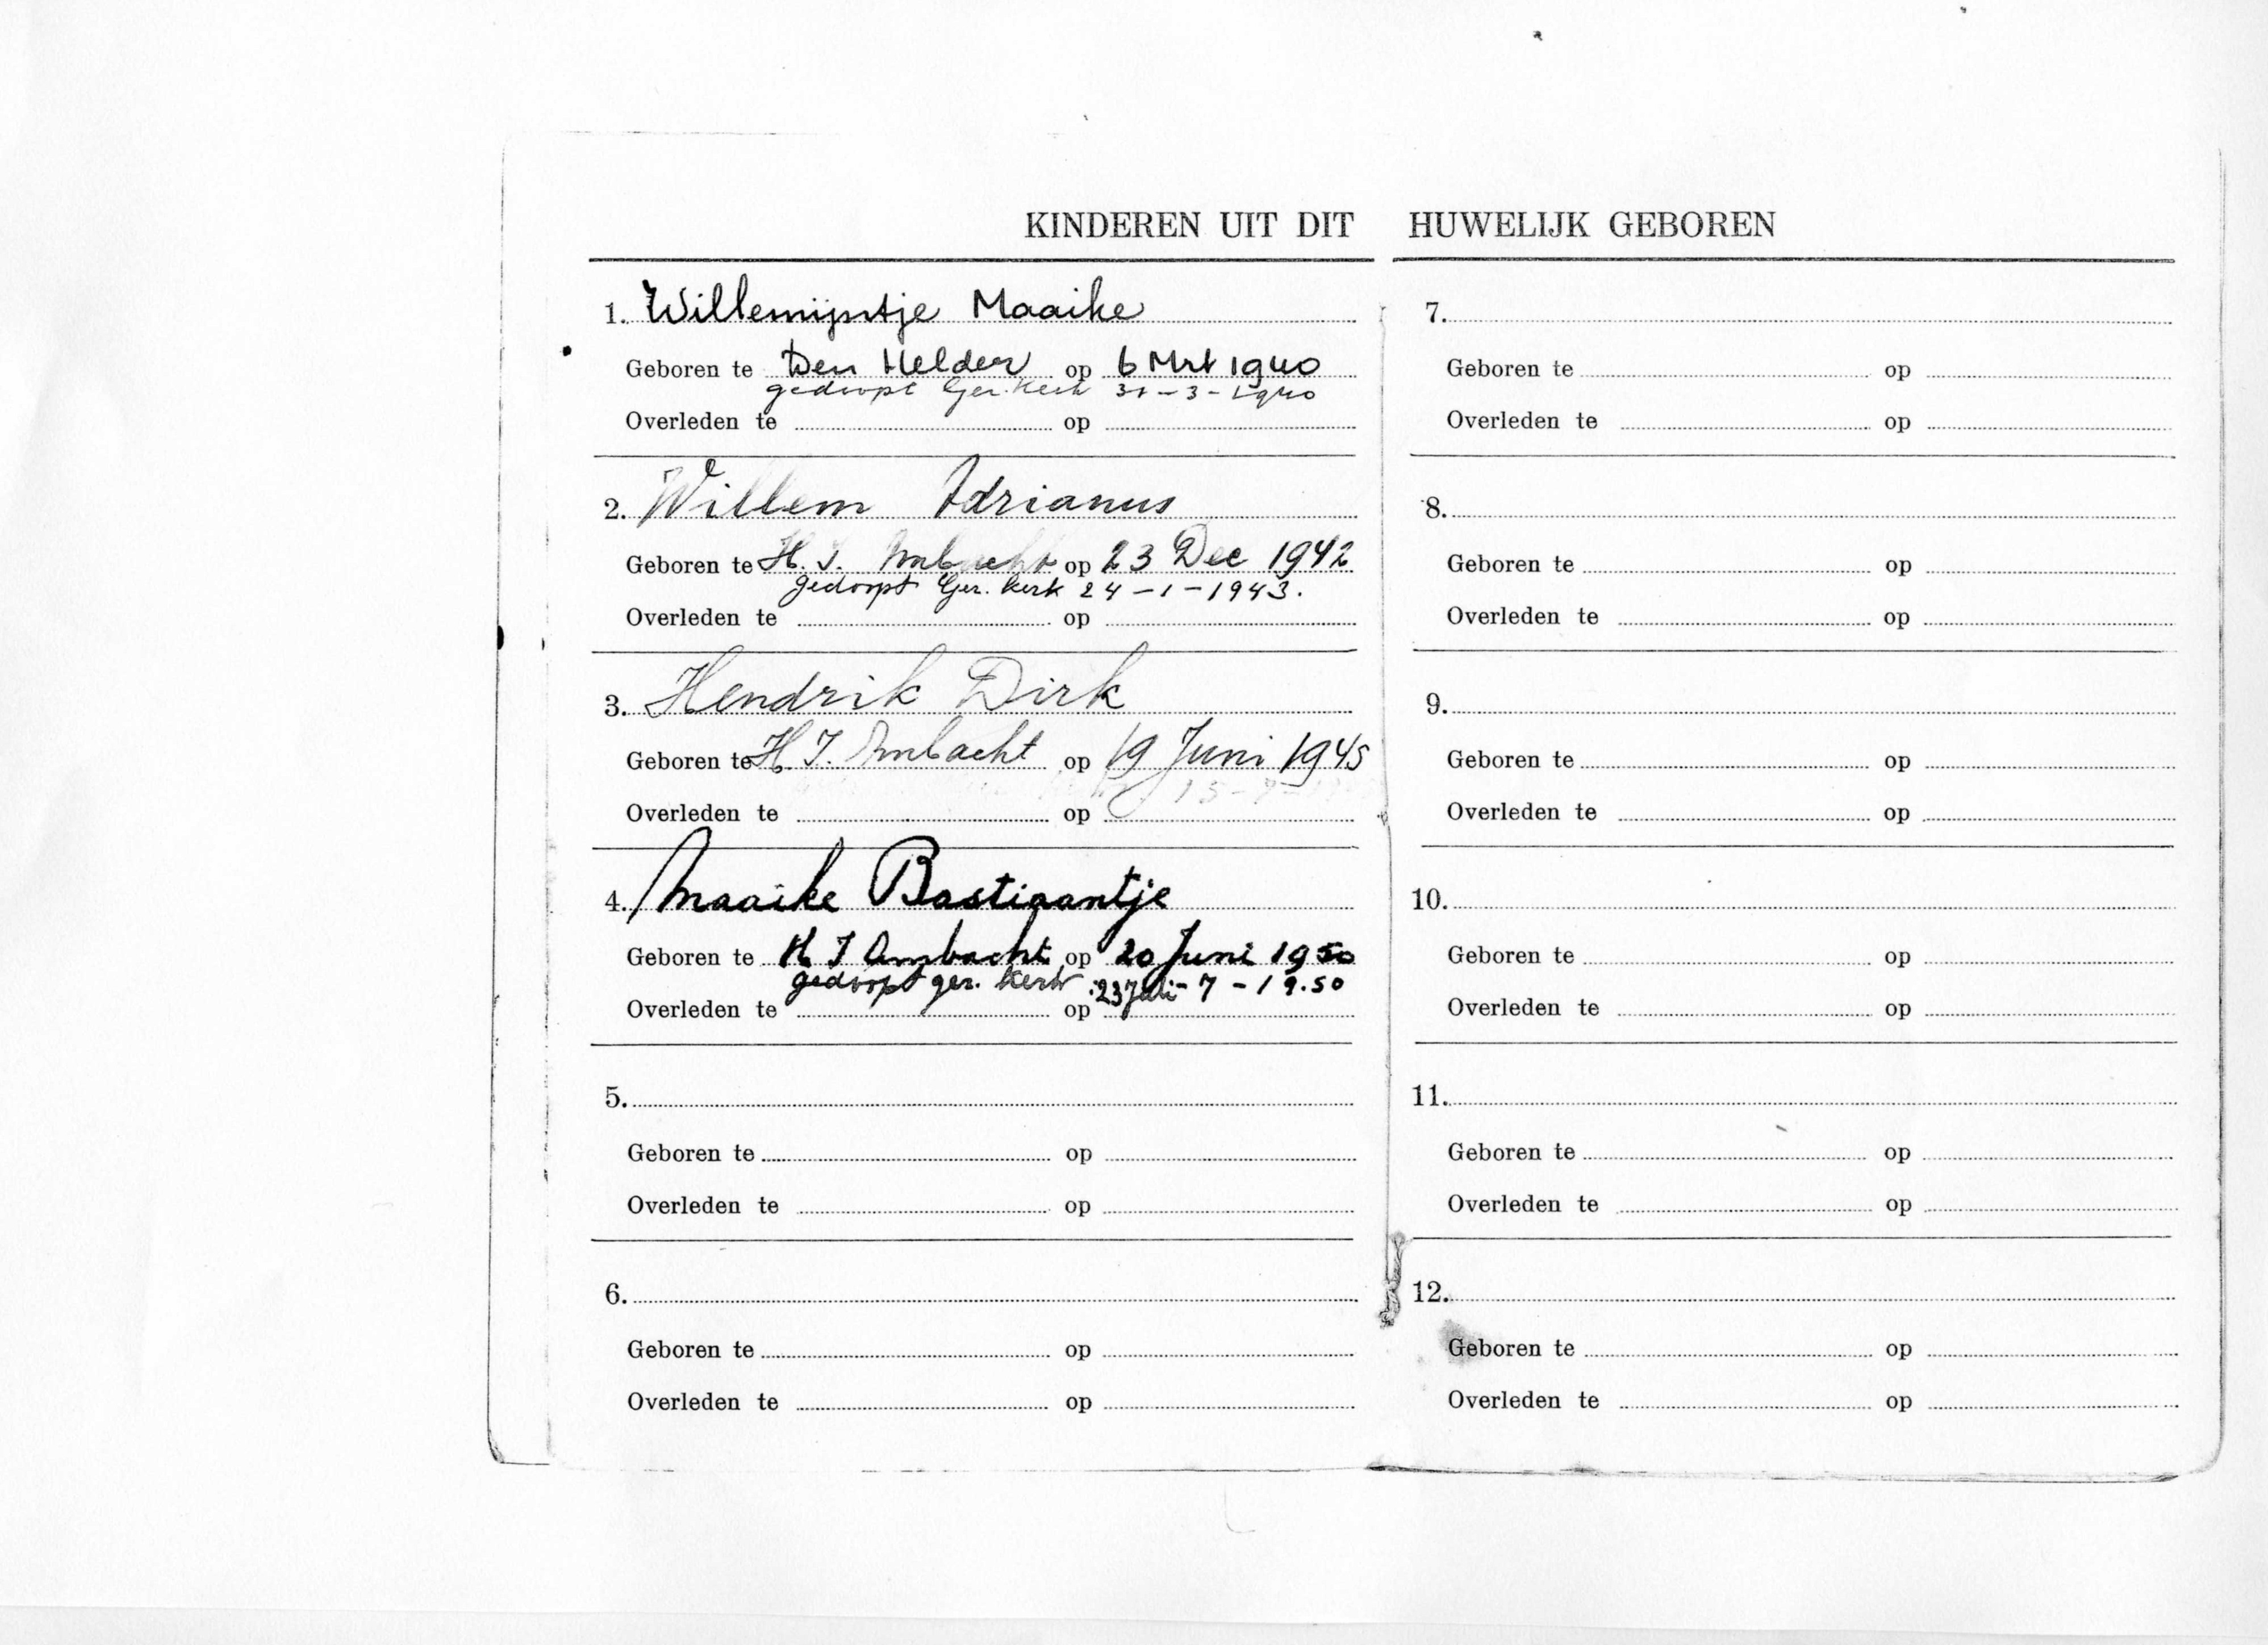 KINDEREN UIT DIT HUWELIJK GEBOREN
1. Willemijntje Maaike
Geboren te Den Helder op 6 Mrt 1940
gedoopt Ger. Kerk 31-3-1940
Overleden te op
2. Willem Adrianus
Geboren te H. I. Ambacht op 23 Dec 1942
gedoopt Ger. kerk 24-1-1943.
Overleden te op
3. Hendrik Dirk
Geboren te H. I. Ambacht op 19 Juni 1945
15-7-
Overleden te op
4. Maaike Bastiaantje
Geboren te H I Ambacht op 20 Juni 1950
gedoopt ger. kerk 23 Juli-7-19.50
Overleden te op
5.
Geboren te op
Overleden te op
6.
Geboren te op
Overleden te op
7.
Geboren te op
Overleden te op
8.
Geboren te op
Overleden te op
9.
Geboren te op
Overleden te op
10.
Geboren te op
Overleden te op
11.
Geboren te op
Overleden te op
12.
Geboren te op
Overleden te op